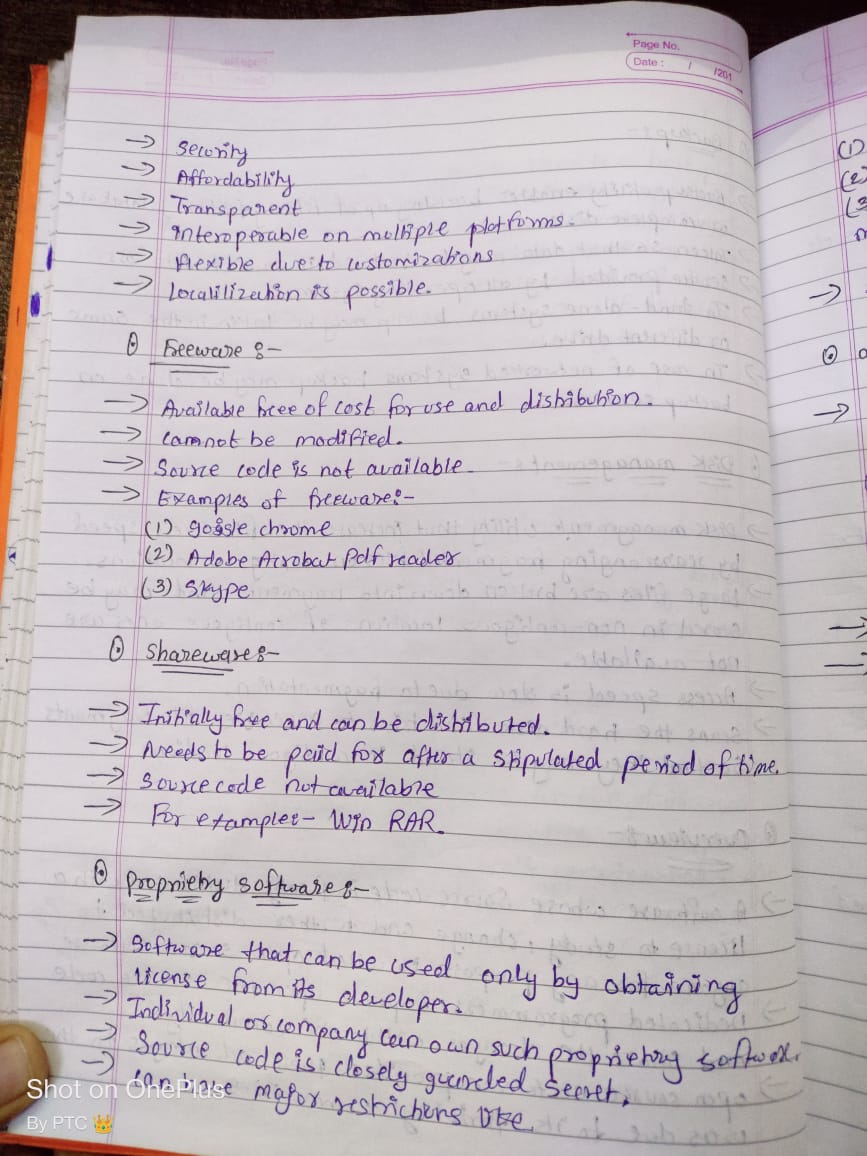 Page No.
Date : / /201
→ Security
→ Affordability
→ Transparent
→ Interoperable on multiple platforms.
→ flexible due to customizations
→ Localilization is possible.
⊙ Freeware :-
→ Available free of cost for use and distribution.
→ cannot be modified.
→ Source code is not available
→ Examples of freeware:-
(1) google chrome
(2) Adobe Acrobat Pdf reader
(3) Skype
⊙ Shareware:-
→ Initially free and can be distributed.
→ Needs to be paid for after a stipulated period of time.
→ Source code not available
→ For example:- Win RAR.
⊙ Propriety software:-
→ Software that can be used only by obtaining
license from its developer.
→ Individual or company can own such propriety software.
→ Source code is closely guarded secret,
→ can have major restrictions
Shot on OnePlus
By PTC 👑
(1)
(2)
(3
→
⊙
→
→
→